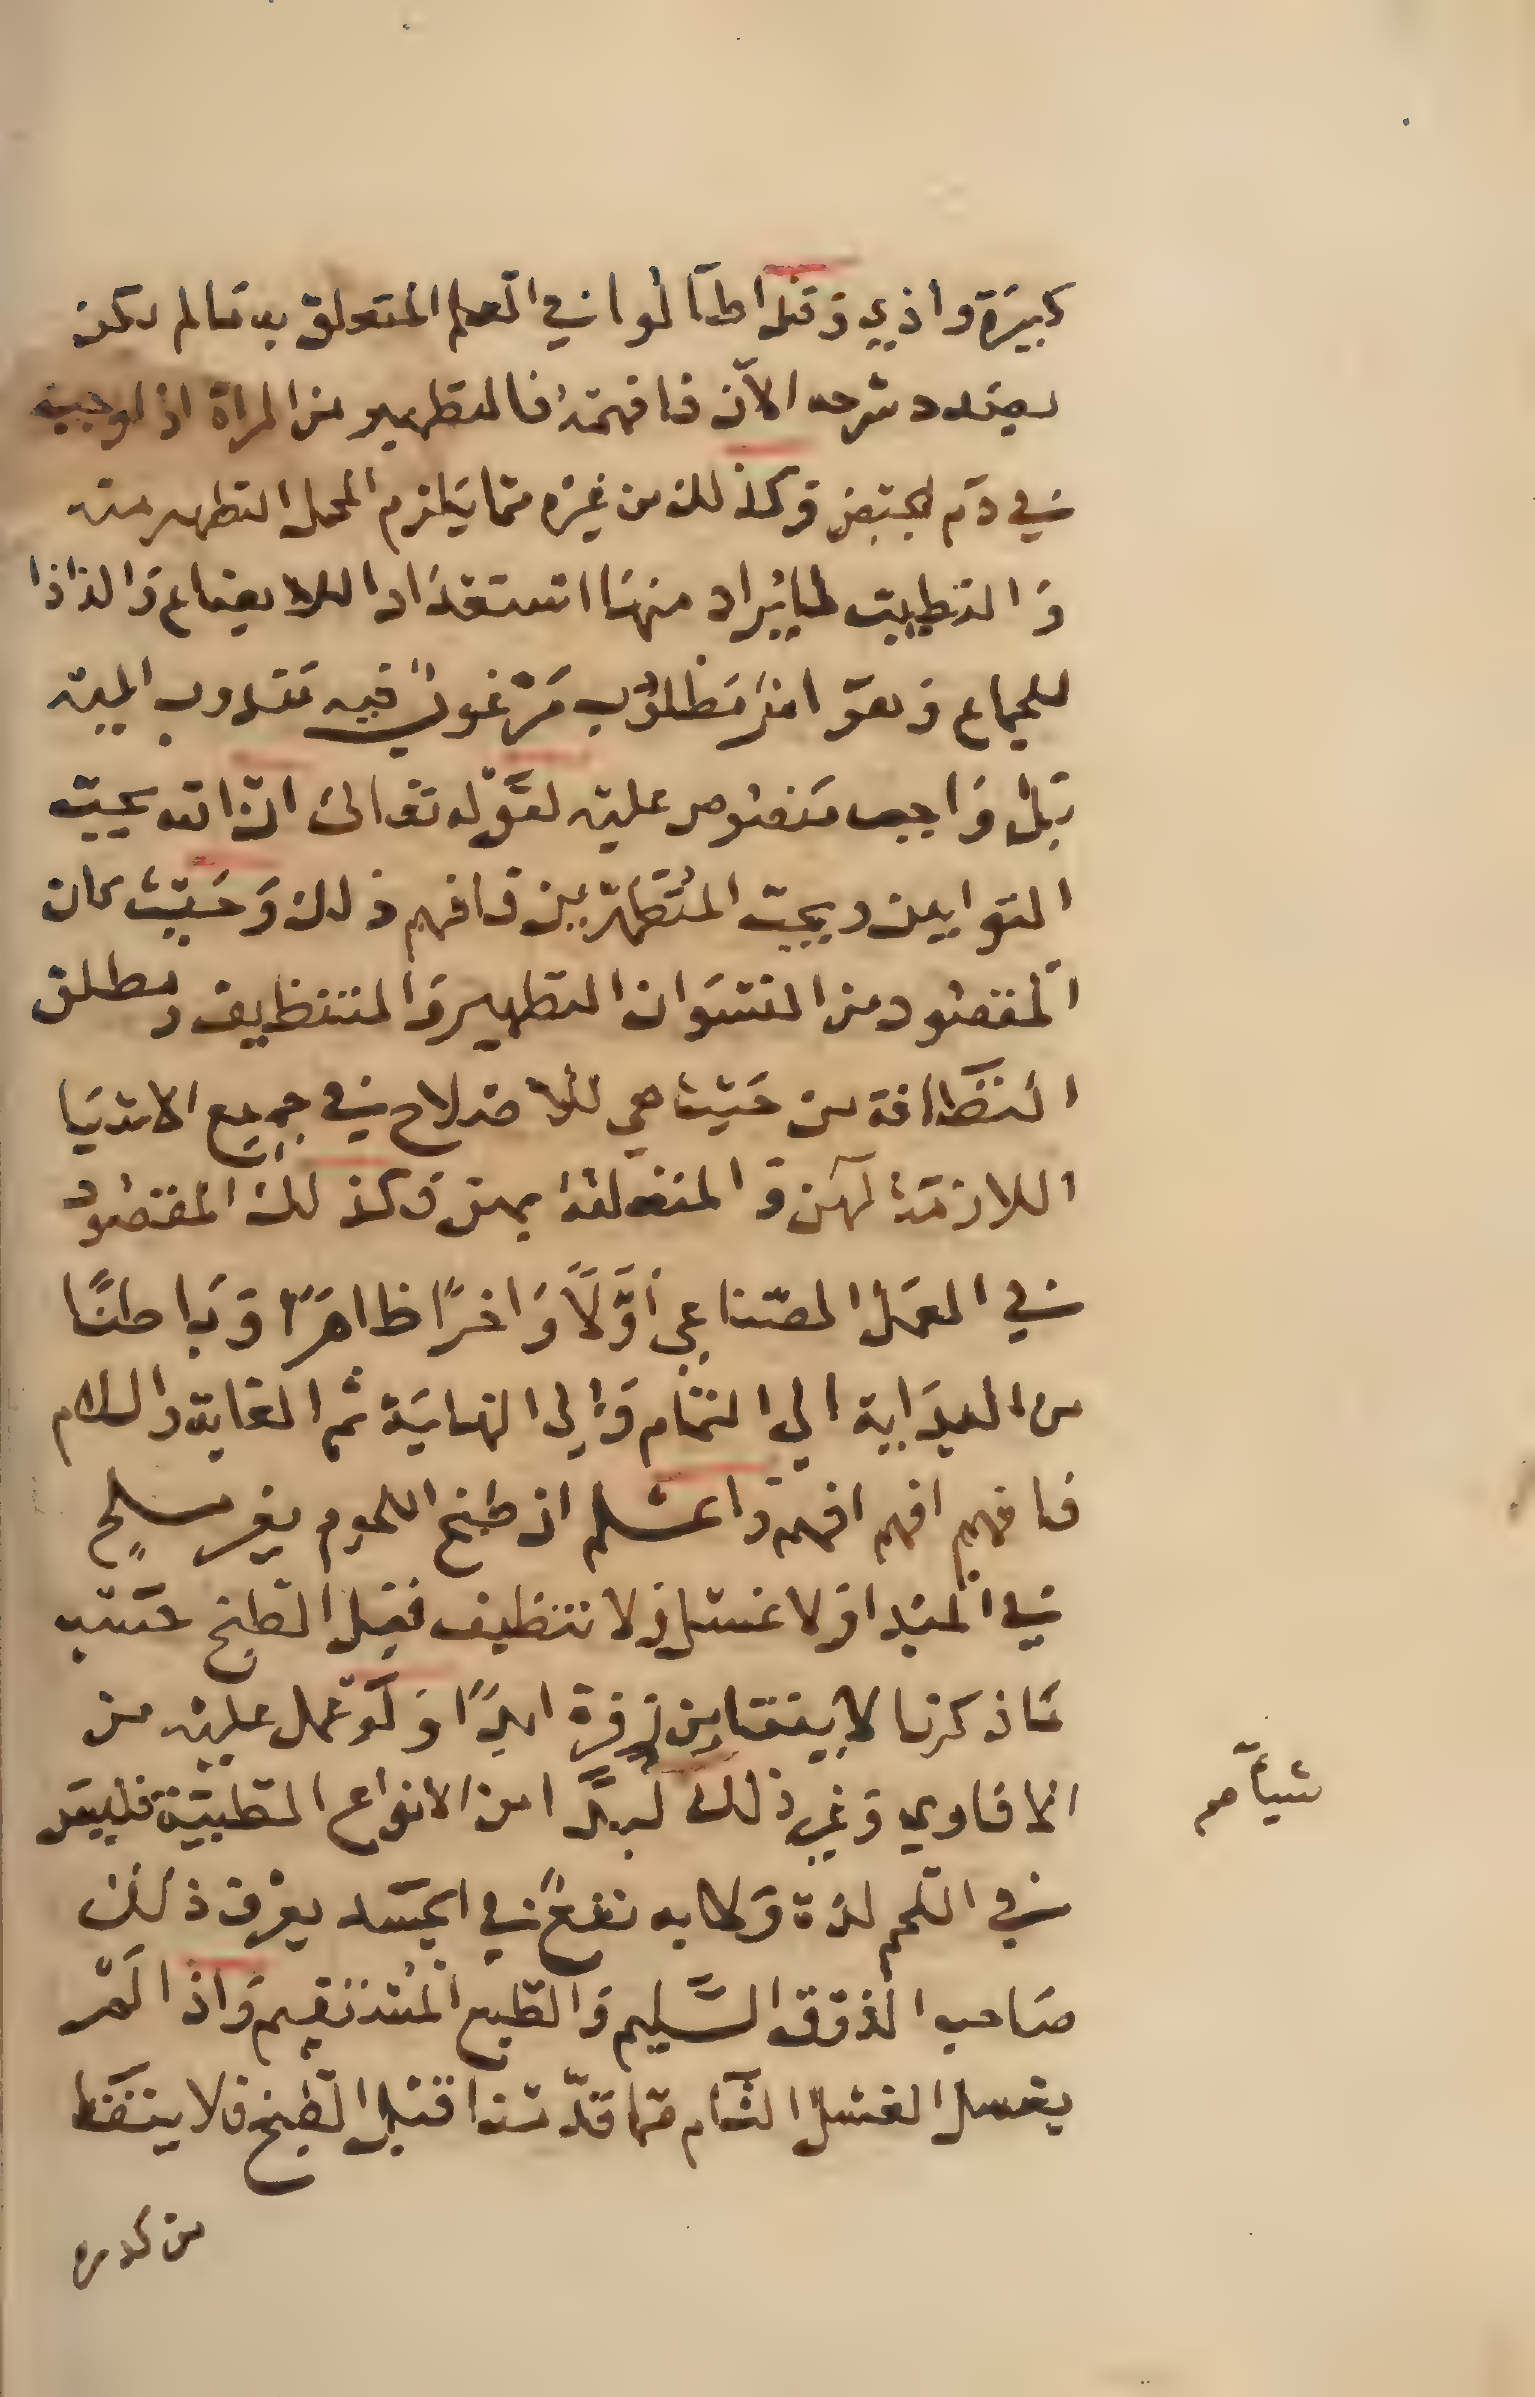 كبيرة واذي وقد اطالوا في العلم المتعلق به ما لم يكن
بصدد شرحه الآن فافهمه فالتطهير من المراة اذا وجبت
في دم الحيض وكذلك من غيره مما يلزم المحل التطهير منه
وَالتطييب لما يُراد منها استعدَادا للايقاع وَالذاذا
للجماع وَهوَ امرٌ مَطلوُب مَرْغوبٌ فيه مَندوب اليه
بَل وَاجب مَنصُوص عليه لقَوْله تعَالىَ انّ الله يحبّ
التوابين ويحبّ المُتَطهّرين فافهم ذلك وَحَيْث كان
المقصُود من النسْوَان التطهير وَالتنظيف ومطلق
النَظافة من حَيْث هي للاصْلاح في جميع الاشيَا
اللازمَة لهن وَالمتعلقة بهنّ وَكذلك المقصُود
في العمَل الصّناعي أوَّلاً وَاخرًا ظاهرًا وَبَاطنًا
من البدَاية الى التمَام وَإلى النهايَة ثم الغاية والسلام
فافهم افهم افهم وَاعْلم ان طبخ اللحوم بغير سلح
في المبدا وَلا غسْل وَلا تنظيف قبْل الطبخ حسَب
مَا ذكرنا لا ينقا من زفرة ابدًا وَلَوْ عمل عليْه من
الافاوي وَغير ذلك لبدَّا من الانواع الطيّبَة فليسَ
شيأ م
في اللحم لذة وَلا به نفعٌ في الجسَد يعْرف ذلك
صَاحب الذوْق السَّليم وَالطبع المُسْتقيم وَاذا لَمْ
يغسل الغسْل التّام مما قدّمنا قبْل الطبخ فلا يتنقا
من كدره